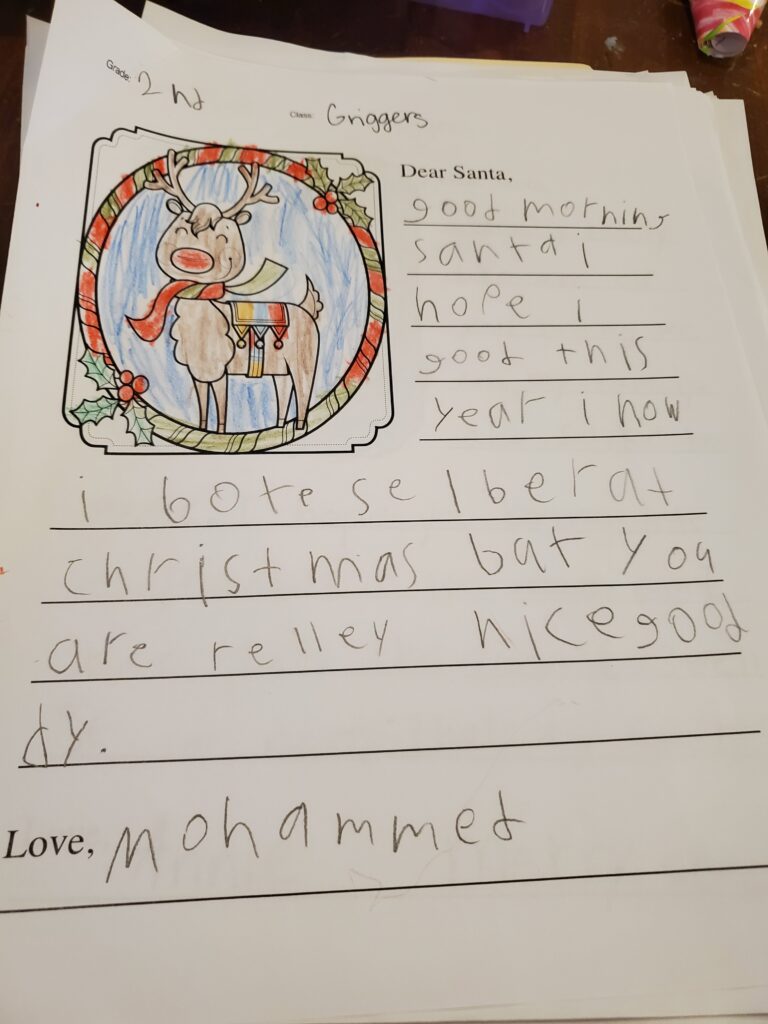 Grade: 2nd
Class: Griggers
Dear Santa,
good morning
santa i
hope i
good this
year i now
i bote selberat
christmas bat you
are relley nicegood
dy.
Love, Mohammed